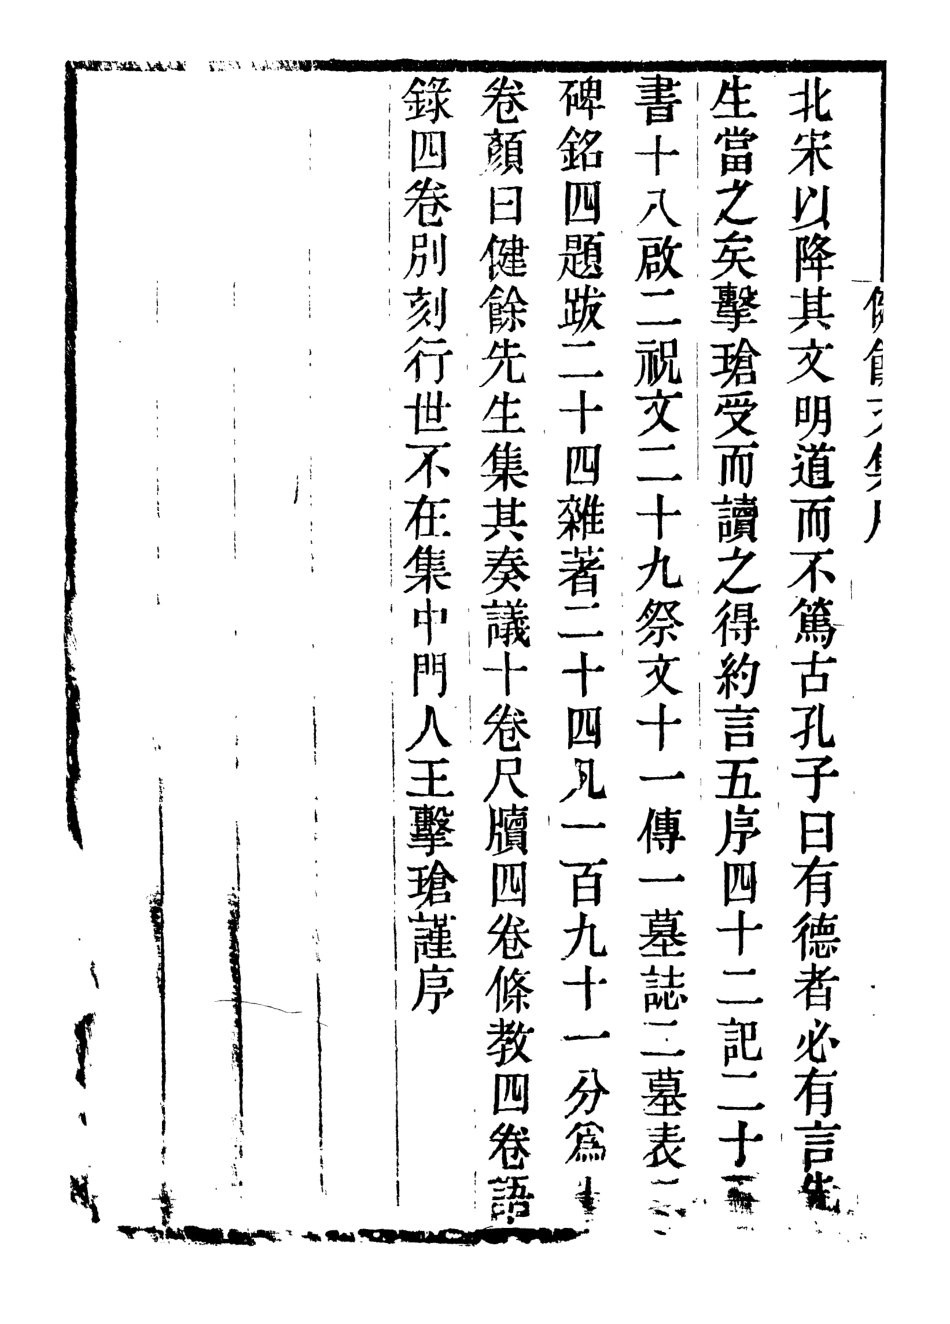 健餘文集序
北宋以降其文明道而不篤古孔子曰有德者必有言先
生當之矣擊瑲受而讀之得約言五序四十二記二十
書十八啟二祝文二十九祭文十一傳一墓誌二墓表
碑銘四題跋二十四雜著二十四凡一百九十一分爲十
卷顏曰健餘先生集其奏議十卷尺牘四卷條教四卷語
錄四卷別刻行世不在集中門人王擊瑲謹序